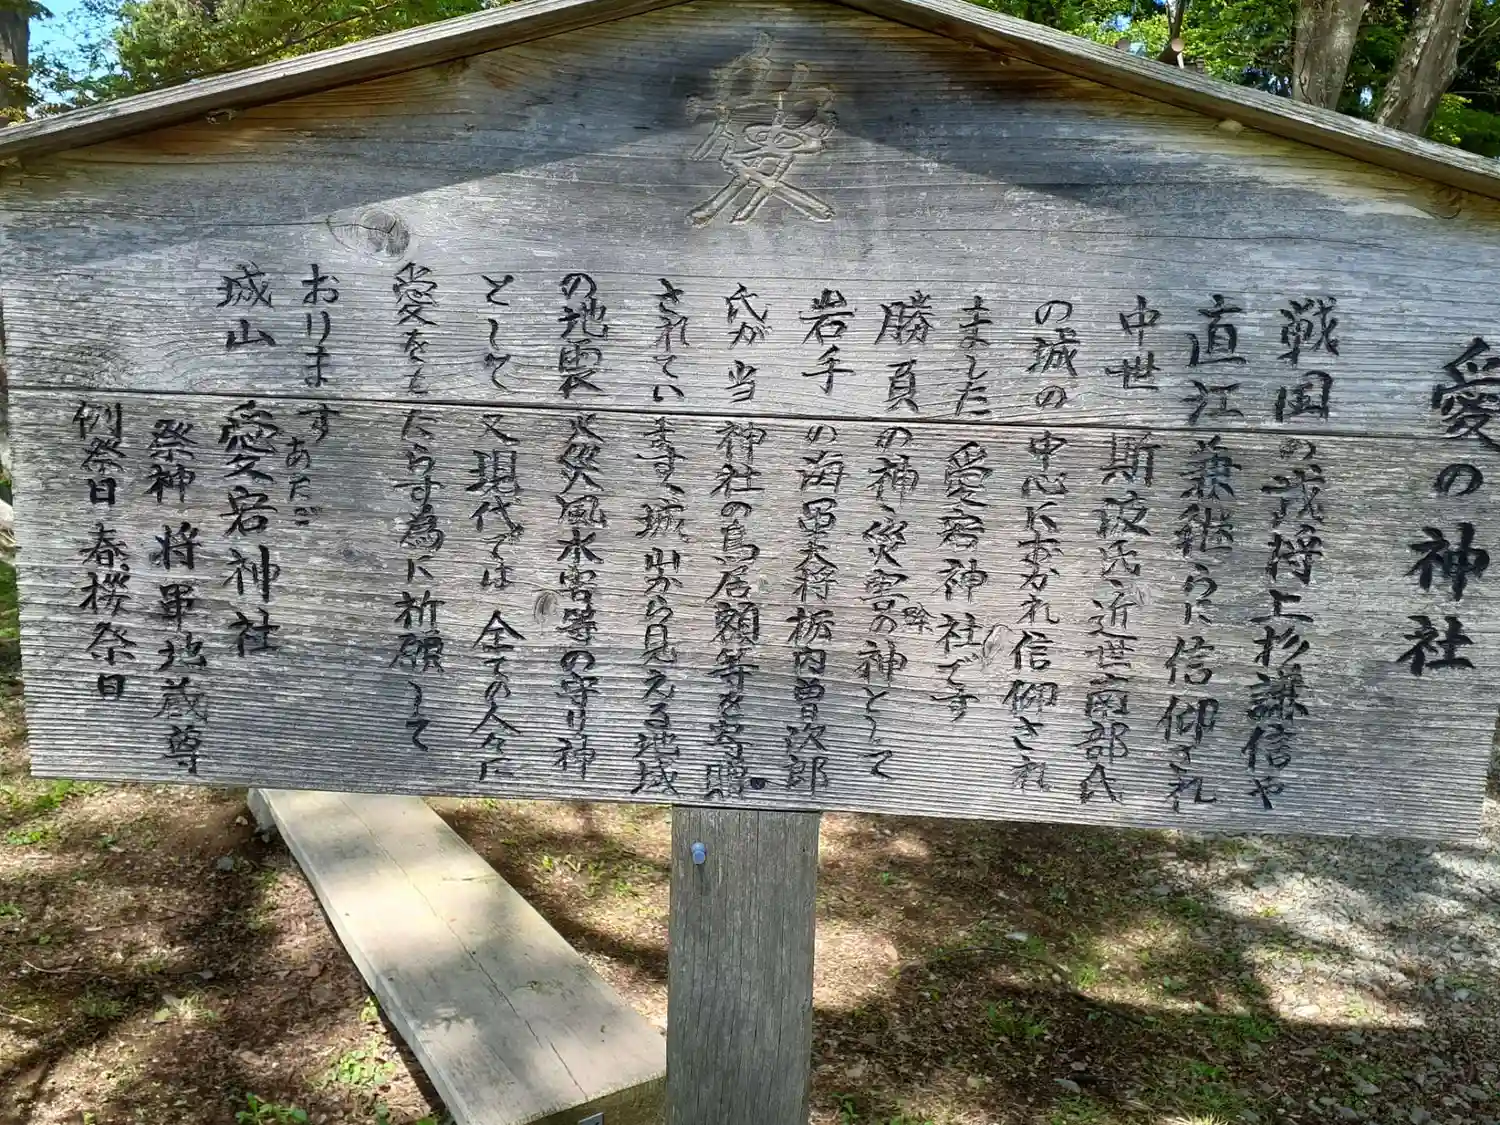 愛
愛の神社
戦国の武将上杉謙信や
直江兼継らに信仰され
中世 斯波氏、近世南部氏
の城の中心におかれ信仰され
ました 愛宕神社です
勝負の神、災害の除神として
岩手の海軍大将栃内曽次郎
氏が当神社の鳥居額等を寄贈
されています、城山から見える地域
の地震 火災風水害等の守り神
として 又現代では 全ての人々に
愛をもたらす為に祈願して
おります
城山 愛宕神社
あたご
祭神 将軍地蔵尊
例祭日 春 桜祭日